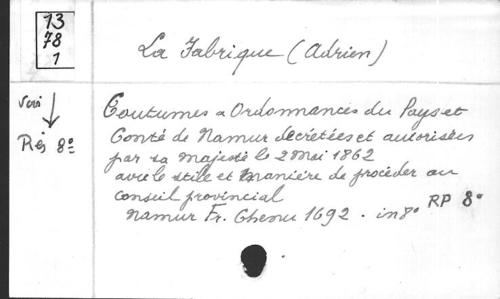 13
78
1
La Fabrique (Adrien)
voir
Rés 8°
Coutumes & Ordonnances du Pays et
Comté de Namur décrétées et autorisées
par sa majesté le 2 mai 1862
avec le stile et manière de procéder au
conseil provincial
Namur Fr. 1692. in 8°
RP 8°